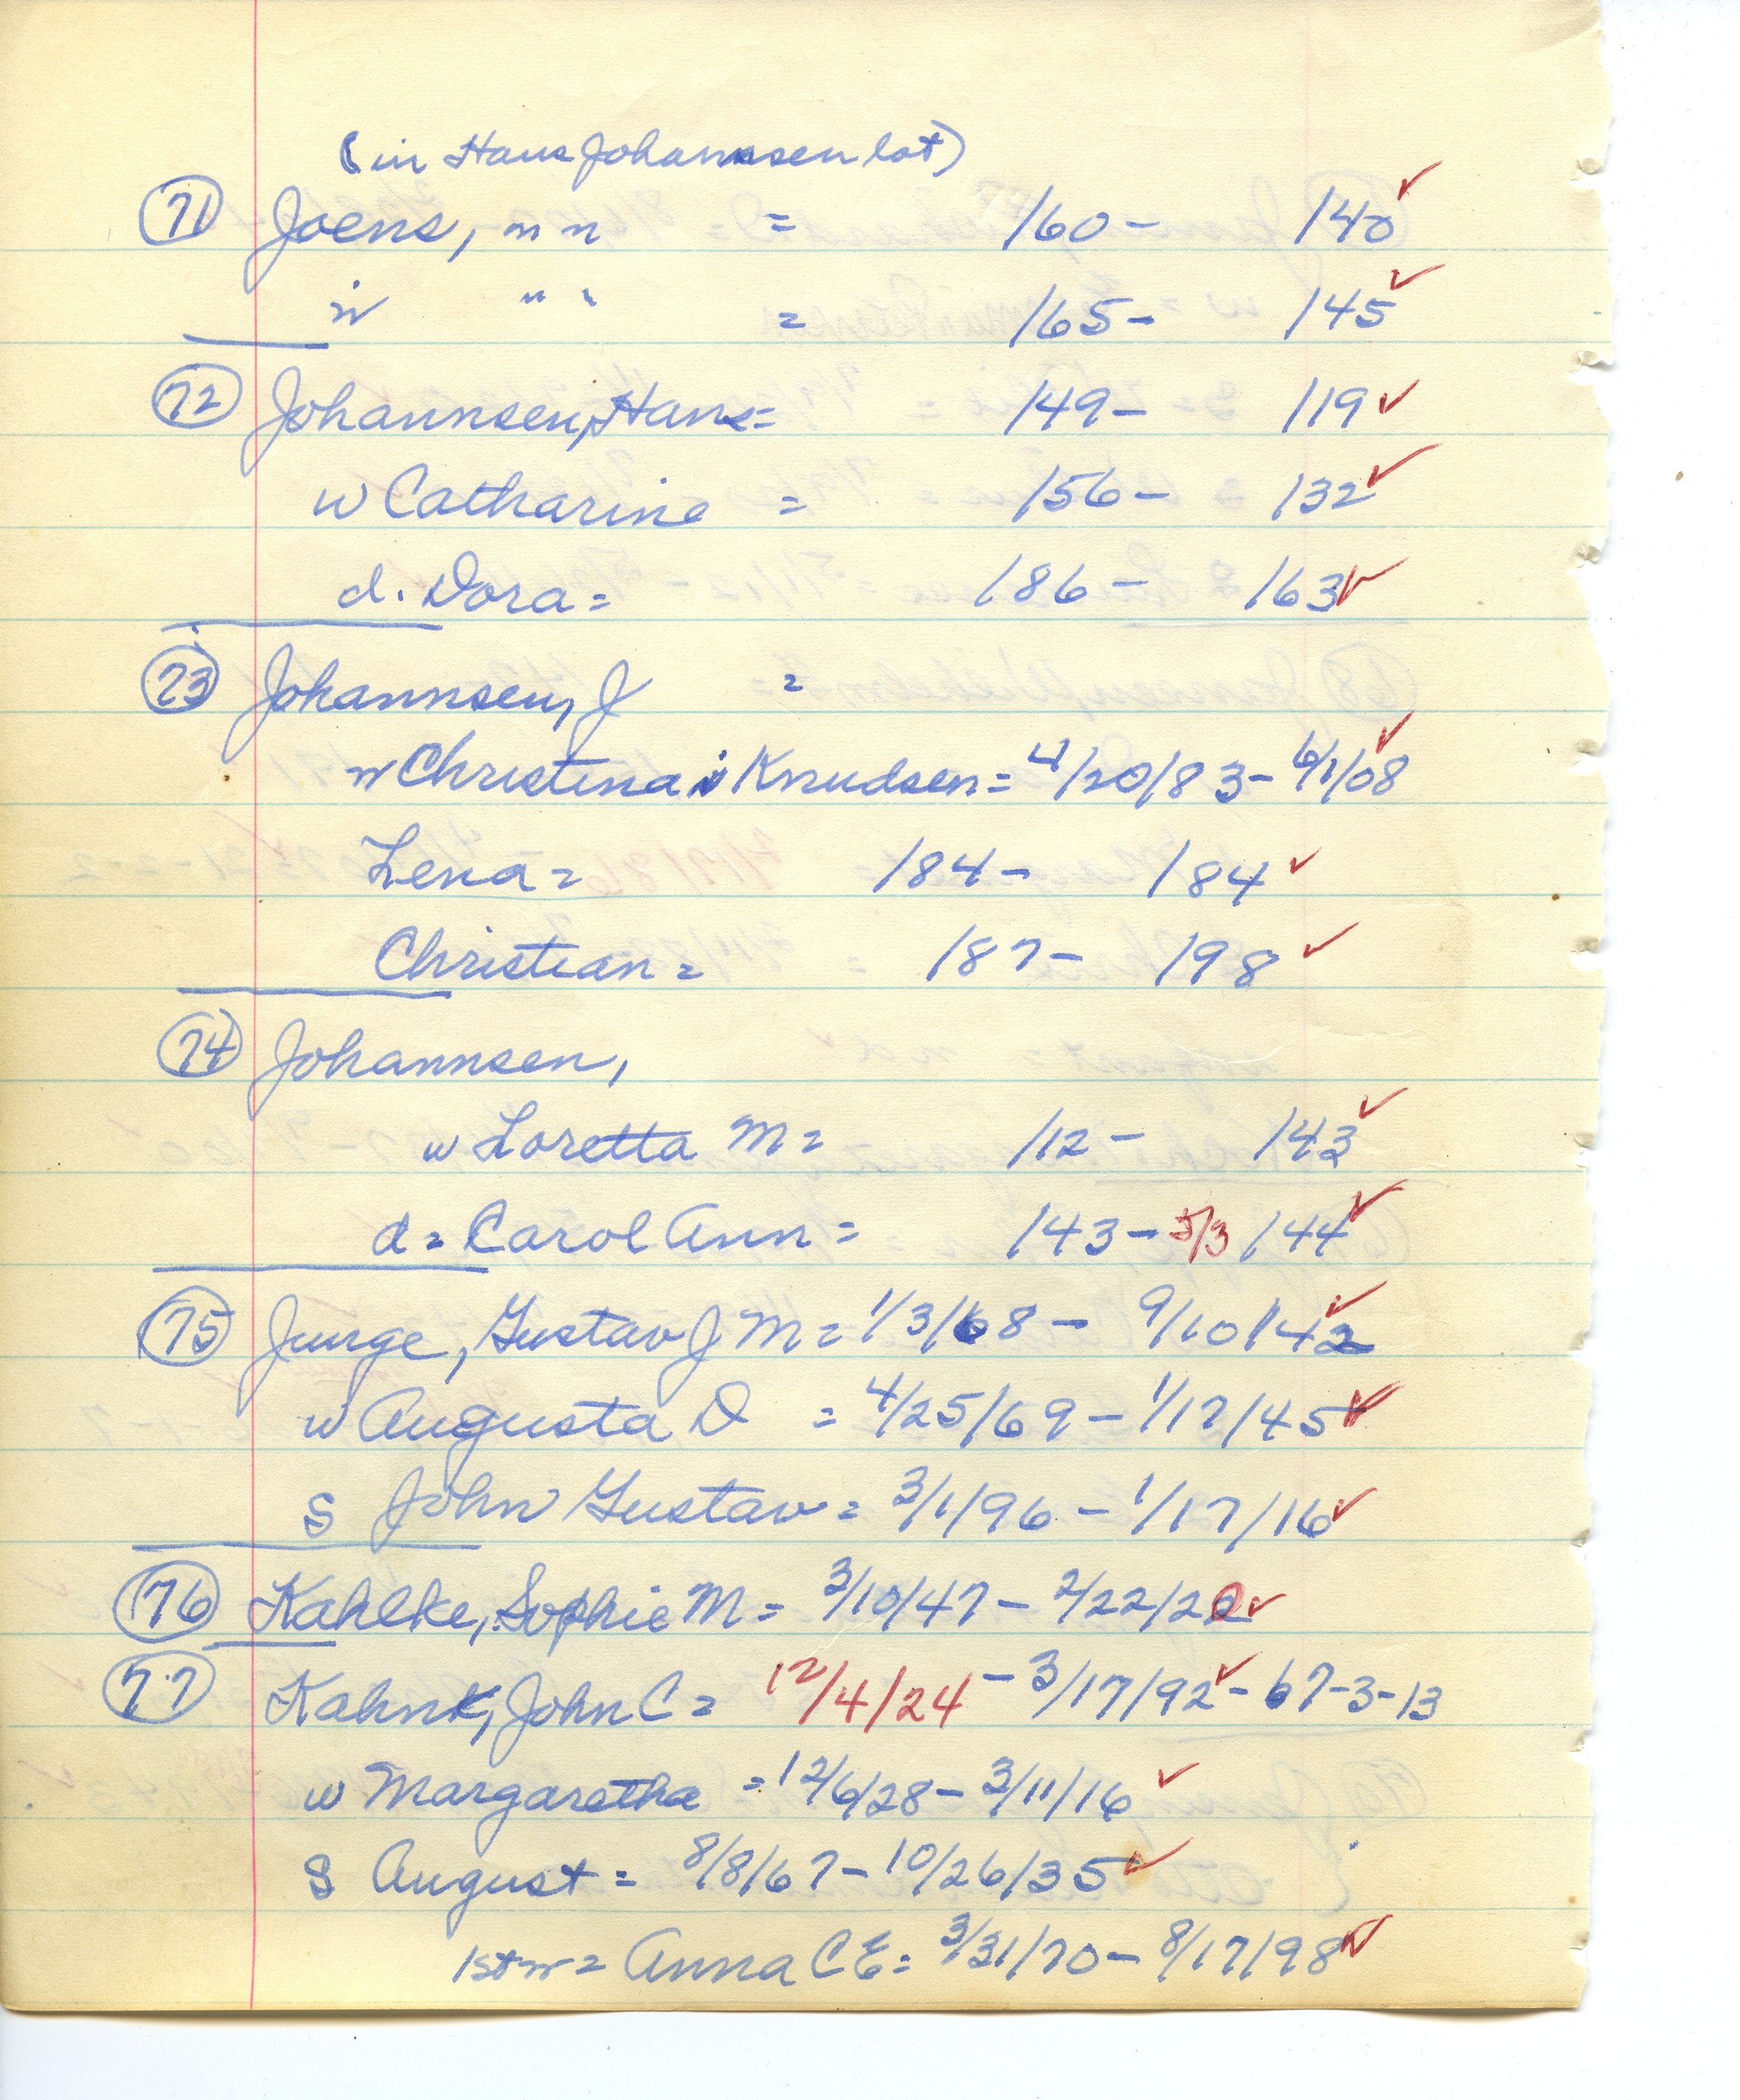 (in Hans Johannsen lot)
71 Joens, m n = /60 - /40 ✓
w " " = /65 - /45 ✓
72 Johannsen, Hans = /49 - /19 ✓
w Catharine = /56 - /32 ✓
d. Dora = /86 - /63 ✓
73 Johannsen, J =
w Christina Knudsen = 4/20/83 - 6/1/08 ✓
Lena = /84 - /84 ✓
Christian = /87 - /98 ✓
74 Johannsen,
w Loretta M = /12 - /43 ✓
d = Carol Ann = /43 - 5/3/44 ✓
75 Junge, Gustav J M = 1/3/68 - 9/10/42 ✓
w Augusta D = 4/25/69 - 1/17/45 ✓
S John Gustav = 3/1/96 - 1/17/16 ✓
76 Kahlke, Sophie M = 3/10/47 - 2/22/20 ✓
77 Kahnk, John C = 12/4/24 - 3/17/92 ✓ - 67-3-13
w Margaretha = 12/6/28 - 3/11/16 ✓
S August = 8/8/67 - 10/26/35 ✓
1st w = Anna C E = 3/31/70 - 8/17/98 ✓